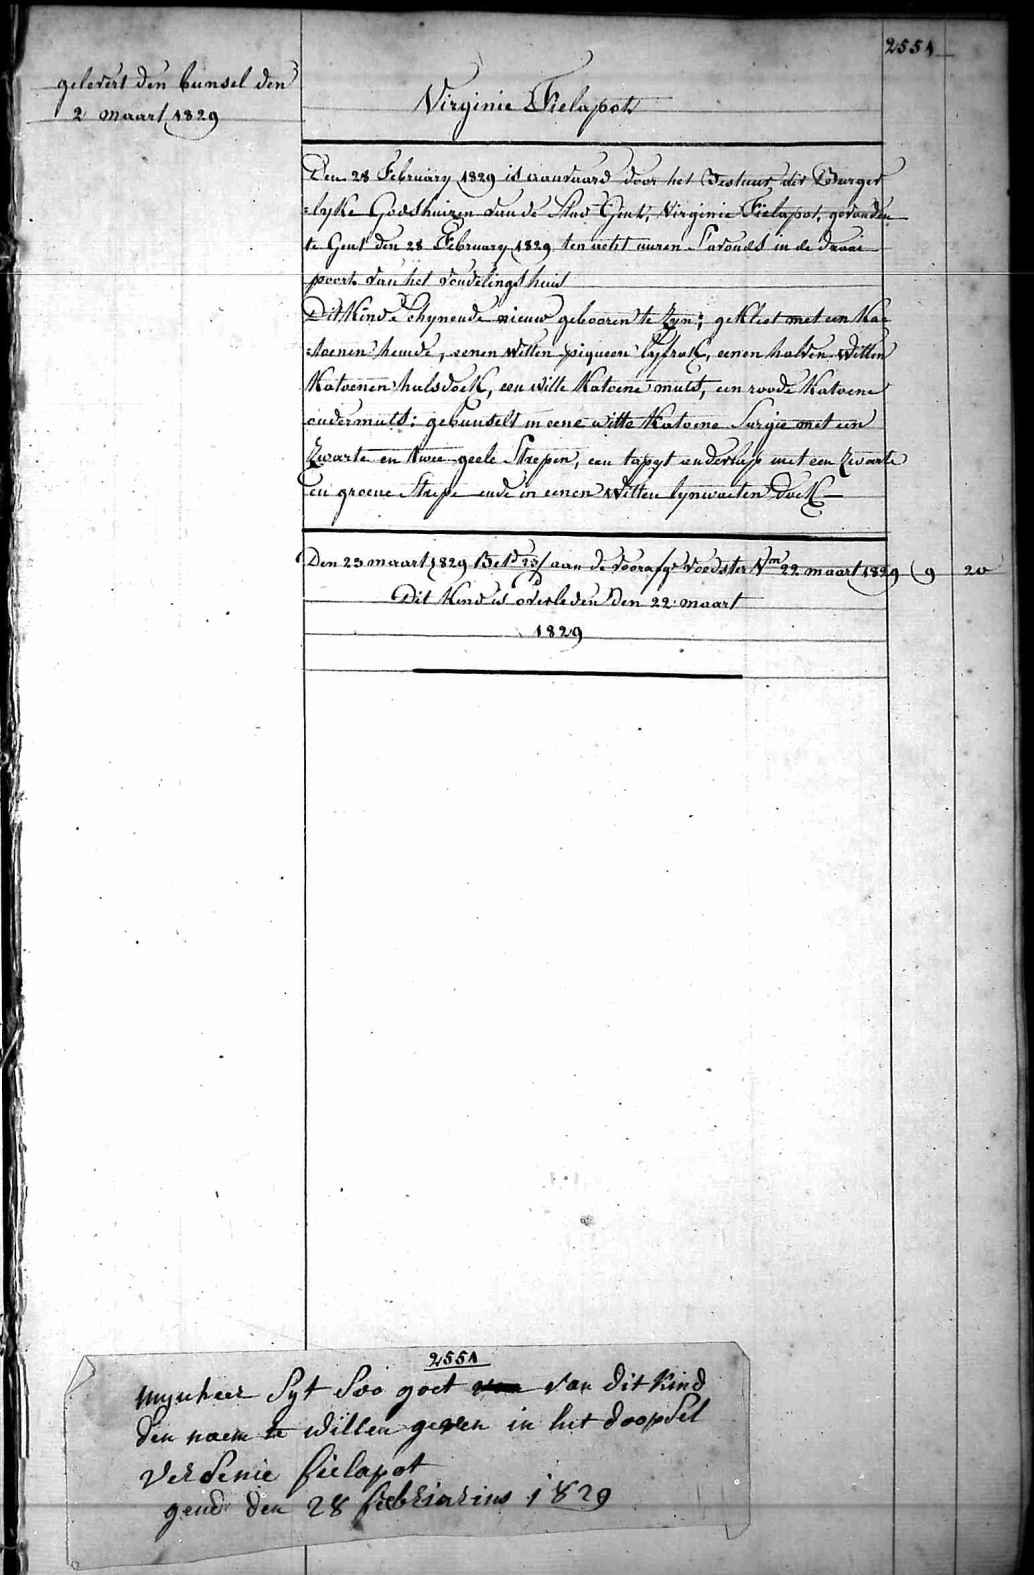 2551
gelevert den bunsel den
2 maart 1829
Virginie Fielapot
Den 28 February 1829 is aanvaard door het Bestuur der Burger
=lyke Godshuizen van de Stad Gent, Virginie Fielapot, gevonden
te Gent den 28 February 1829 ten acht uuren S'avonds in de draai
poort van het vondelingshuis
Dit Kind Schynende nieuw gebooren te Zyn; gekleet met een Ka=
=toenen hemde, eenen witten piqueen lyfrok, eenen halven witten
Katoenen halsdoek, een witte Katoene muts, een roode Katoene
ondermuts; gebunselt in eene witte Katoene Sargie met een
Zwarte en twee geele Strepen, een tapyt onderlap met een Zwarte
en groene Strepe ende in eenen Witten lynwaeten doek
Den 23 maart 1829 Betd aan de voorafge voedster Vm 22 maart 1829 9 20
Dit Kind is overleden den 22 maart
1829
2551
mynheer Syt Soo goet van dit Kind
den naem te willen geven in het doopsel
verSenie fielapot
gend den 28 febriarius 1829